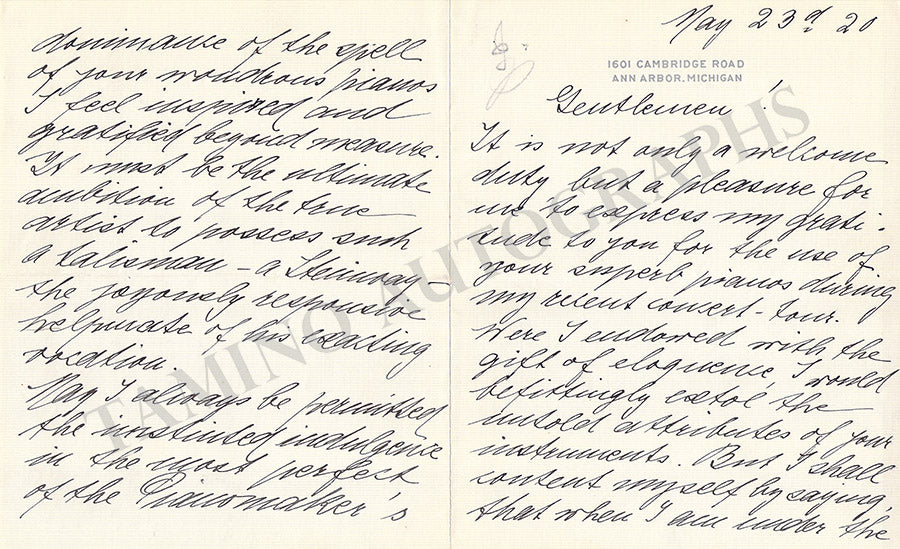 May 23d 20
1601 CAMBRIDGE ROAD
ANN ARBOR. MICHIGAN
Gentlemen!
It is not only a welcome
duty but a pleasure for
me to express my grati-
tude to you for the use of
your superb pianos during
my recent concert-tour.
Were I endowed with the
gift of eloquence, I would
befittingly extol the
untold attributes of your
instruments. But I shall
content myself by saying,
that when I am under the
dominance of the spell
of your wondrous pianos
I feel inspired and
gratified beyond measure.
It must be the ultimate
ambition of the true
artist to possess such
a talisman - a Steinway -
the joyously responsive
helpmate of his exacting
vocation.
May I always be permitted
the unstinted indulgence
in the most perfect
of the Pianomaker's
TAMINO AUTOGRAPHS